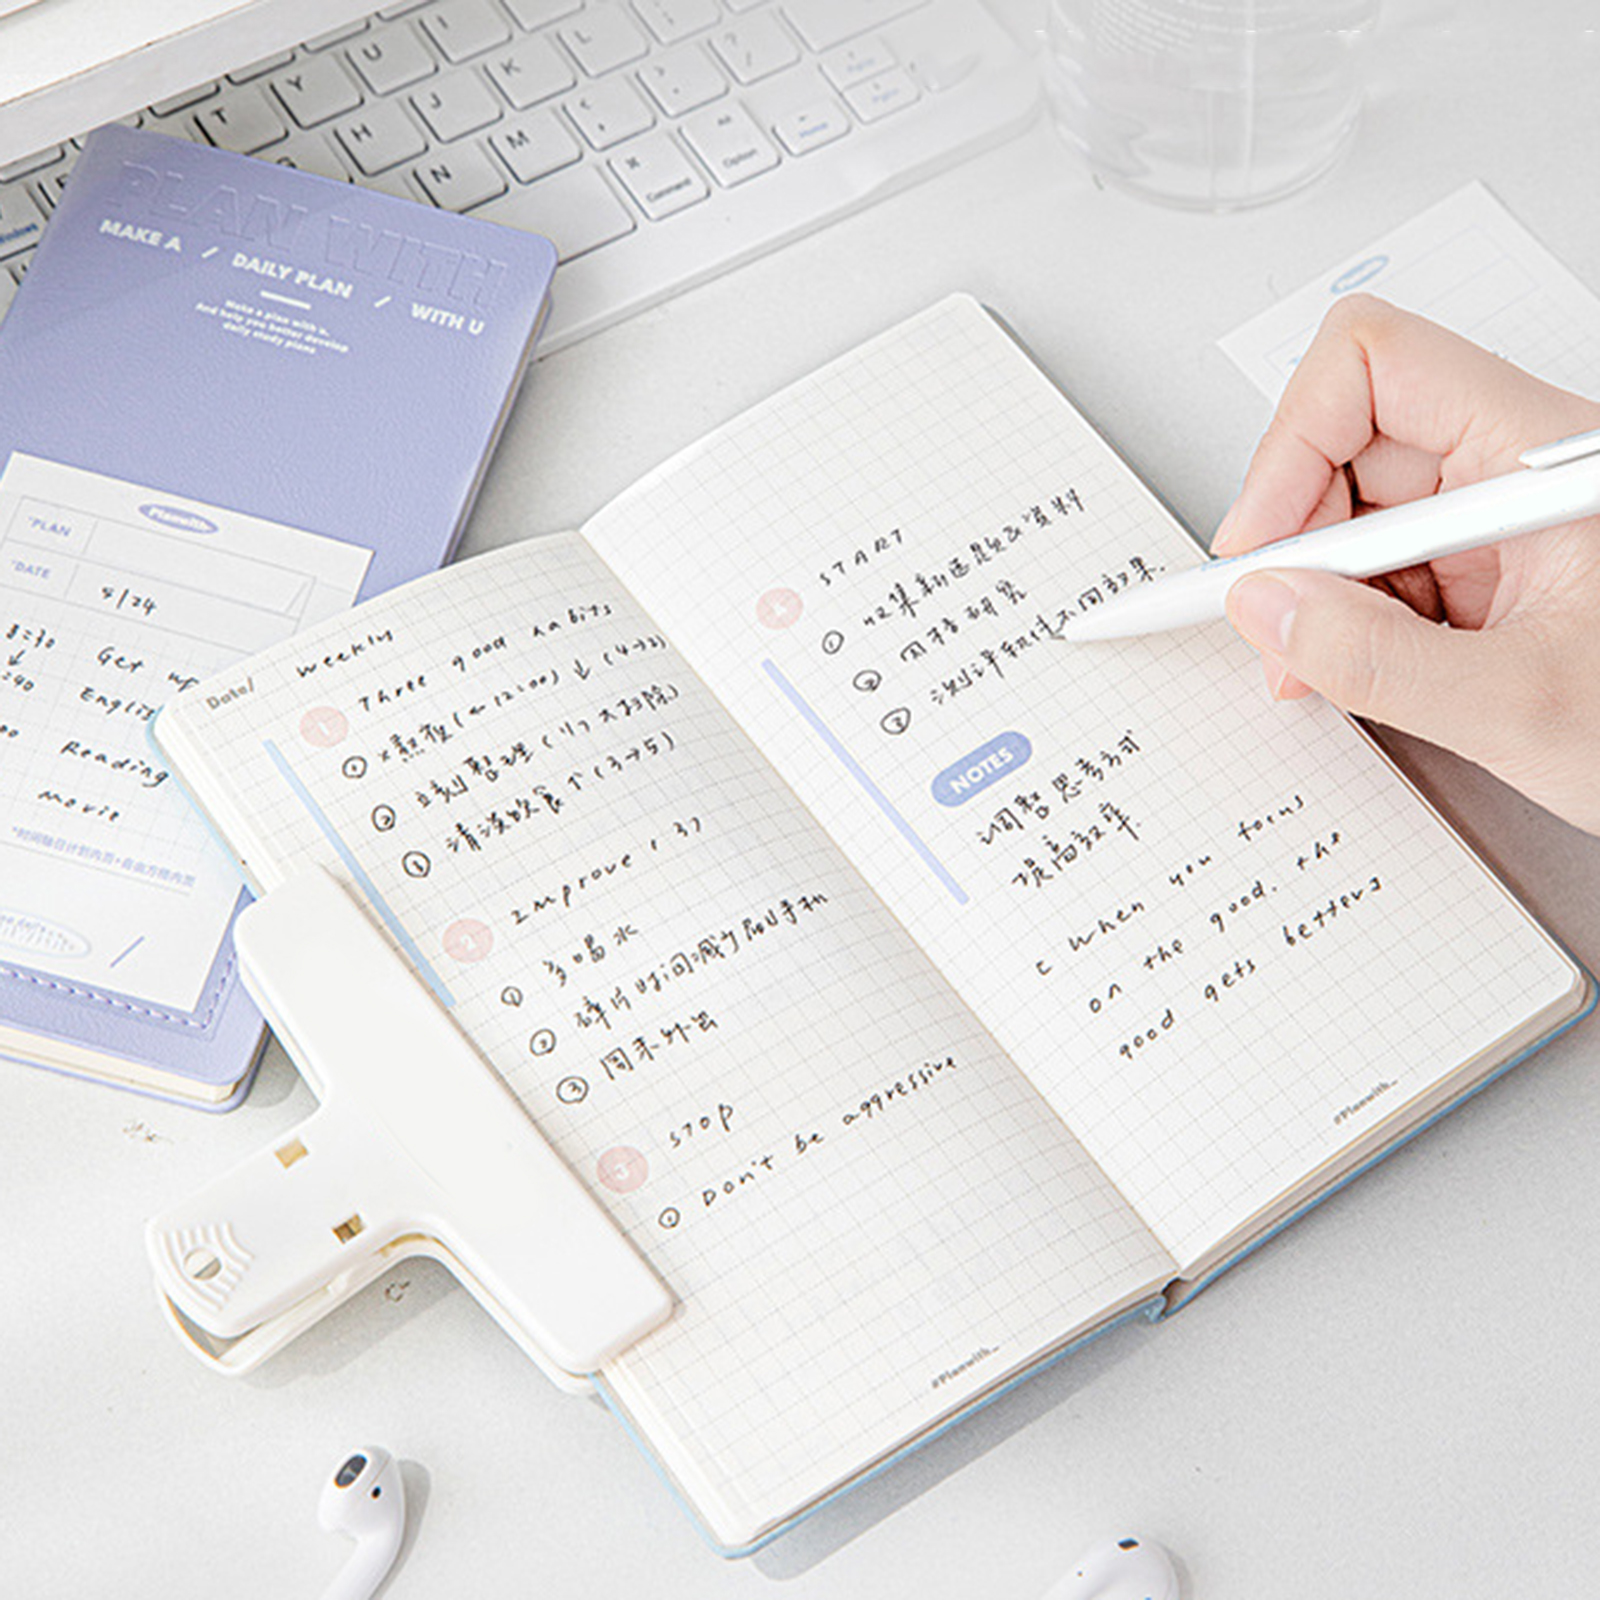 T
Y
U
I
H
J
K
L
N
M
Command
Option
Home
PLAN WITH
MAKE A / DAILY PLAN / WITH U
Make a plan with u,
And help you better develop
daily study plans
Planwith
*PLAN
*DATE 4/24
8:30 Get up
:40 English
Reading
movie
*时间轴日计划内页+自由方格内页
Date/ weekly
1 Three good habits
① ×熬夜(←12:00)↓(4→3)
② 立刻整理(1/7大扫除)
清淡饮食↑(3→5)
2 Improve (3)
① 多喝水
② 碎片时间减少刷手机
③ 周末外出
3 STOP
① Don't be aggressive
#Planwith_
START
① 收集新选题及资料
②
③ 测评软件不同效果.
NOTES
调整思考方式
提高效率.
[ When you focus
on the good. the
good gets better]
#Planwith_